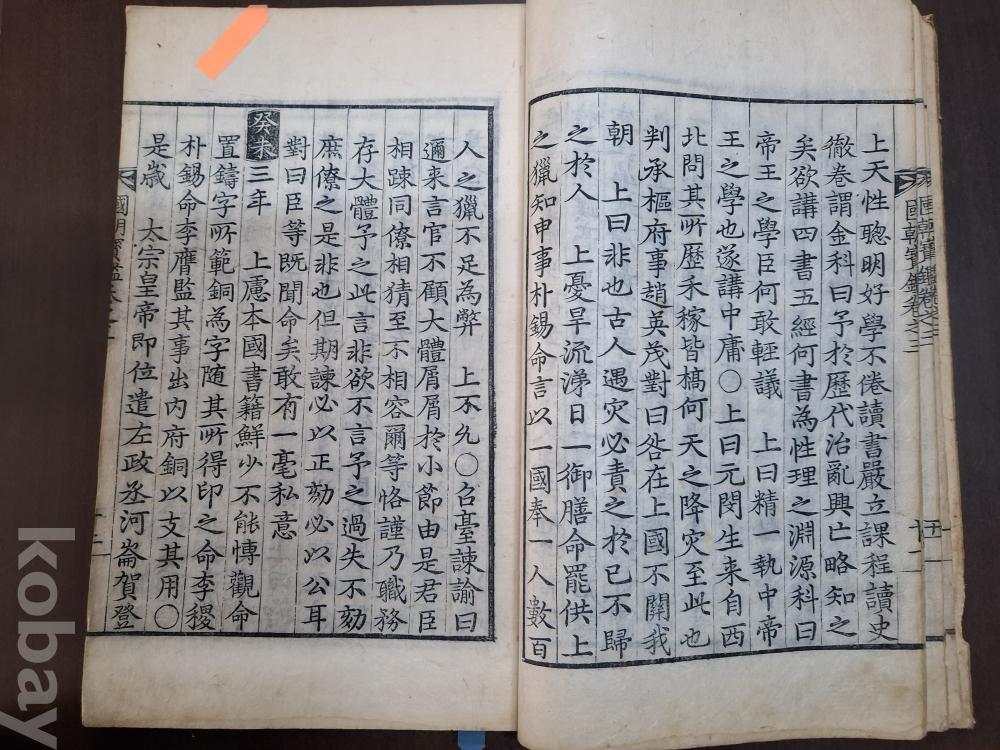 國朝寶鑑卷之三
上天性聰明好學不倦讀書嚴立課程讀史
徹卷謂金科曰予於歷代治亂興亡略知之
矣欲講四書五經何書為性理之淵源科曰
帝王之學臣何敢輕議 上曰精一執中帝
王之學也遂講中庸○上曰元閔生来自西
北問其所歷禾稼皆槁何天之降灾至此也
判承樞府事趙英茂對曰咎在上國不關我
朝 上曰非也古人遇灾必責之於已不歸
之於人 上憂旱流涕日一御膳命罷供上
之獵知申事朴錫命言以一國奉一人數百
人之獵不足為弊 上不允○召臺諫諭曰
邇来言官不顧大體屑屑於小節由是君臣
相踈同僚相猜至不相容爾等恪謹乃職務
存大體予之此言非欲不言予之過失不劾
庶僚之是非也但期諫必以正劾必以公耳
對曰臣等既聞命矣敢有一毫私意
癸未三年 上慮本國書籍鮮少不能博觀命
置鑄字所範銅為字随其所得印之命李稷
朴錫命李膺監其事出內府銅以支其用○
是歲 太宗皇帝即位遣左政丞河崙賀登
kobay